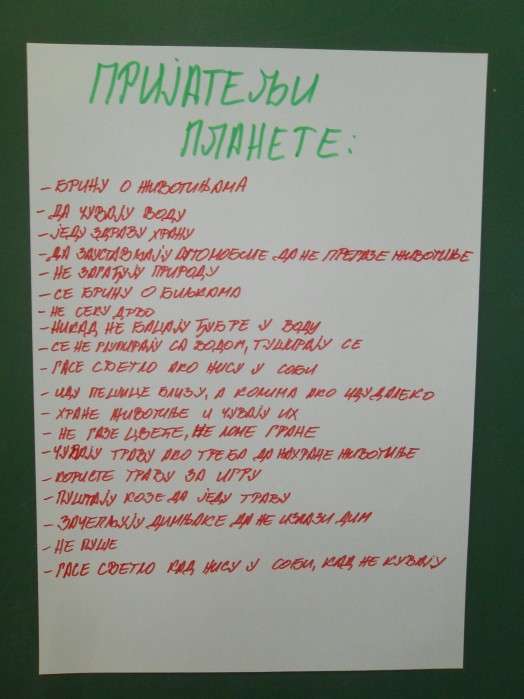 ПРИЈАТЕЉИ
ПЛАНЕТЕ:
- БРИНУ О ЖИВОТИЊАМА
- ДА ЧУВАЈУ ВОДУ
- ЈЕДУ ЗДРАВУ ХРАНУ
- ДА ЗАУСТАВЉАЈУ АУТОМОБИЛЕ ДА НЕ ПРЕГАЗЕ ЖИВОТИЊЕ
- НЕ ЗАГАЂУЈУ ПРИРОДУ
- СЕ БРИНУ О БИЉКАМА
- НЕ СЕКУ ДРВО
- НИКАД НЕ БАЦАЈУ ЂУБРЕ У ВОДУ
- СЕ НЕ ИГРАЈУ СА ВОДОМ, ТУШИРАЈУ СЕ
- ГАСЕ СВЕТЛО АКО НИСУ У СОБИ
- ИДУ ПЕШИЦЕ БЛИЗУ, А КОЛИМА АКО ИДУ ДАЛЕКО
- ХРАНЕ ЖИВОТИЊЕ И ЧУВАЈУ ИХ
- НЕ ГАЗЕ ЦВЕЋЕ, НЕ ЛОМЕ ГРАНЕ
- ЧУВАЈУ ТРАВУ АКО ТРЕБА ДА НАХРАНЕ ЖИВОТИЊЕ
- КОРИСТЕ ТРАВУ ЗА ИГРУ
- ПУШТАЈУ КОЗЕ ДА ЈЕДУ ТРАВУ
- ЗАЧЕПЉУЈУ ДИМЊАКЕ ДА НЕ ИЗЛАЗИ ДИМ
- НЕ ПУШЕ
- ГАСЕ СВЕТЛО КАД НИСУ У СОБИ, КАД НЕ КУВАЈУ